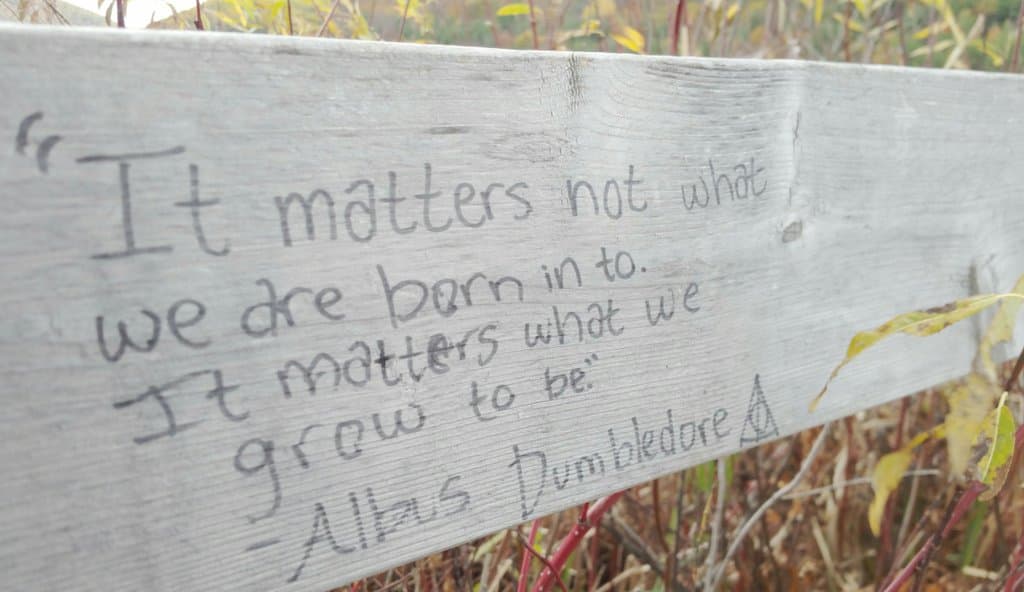 "It matters not what
we are born in to.
It matters what we
grow to be."
-Albus Dumbledore